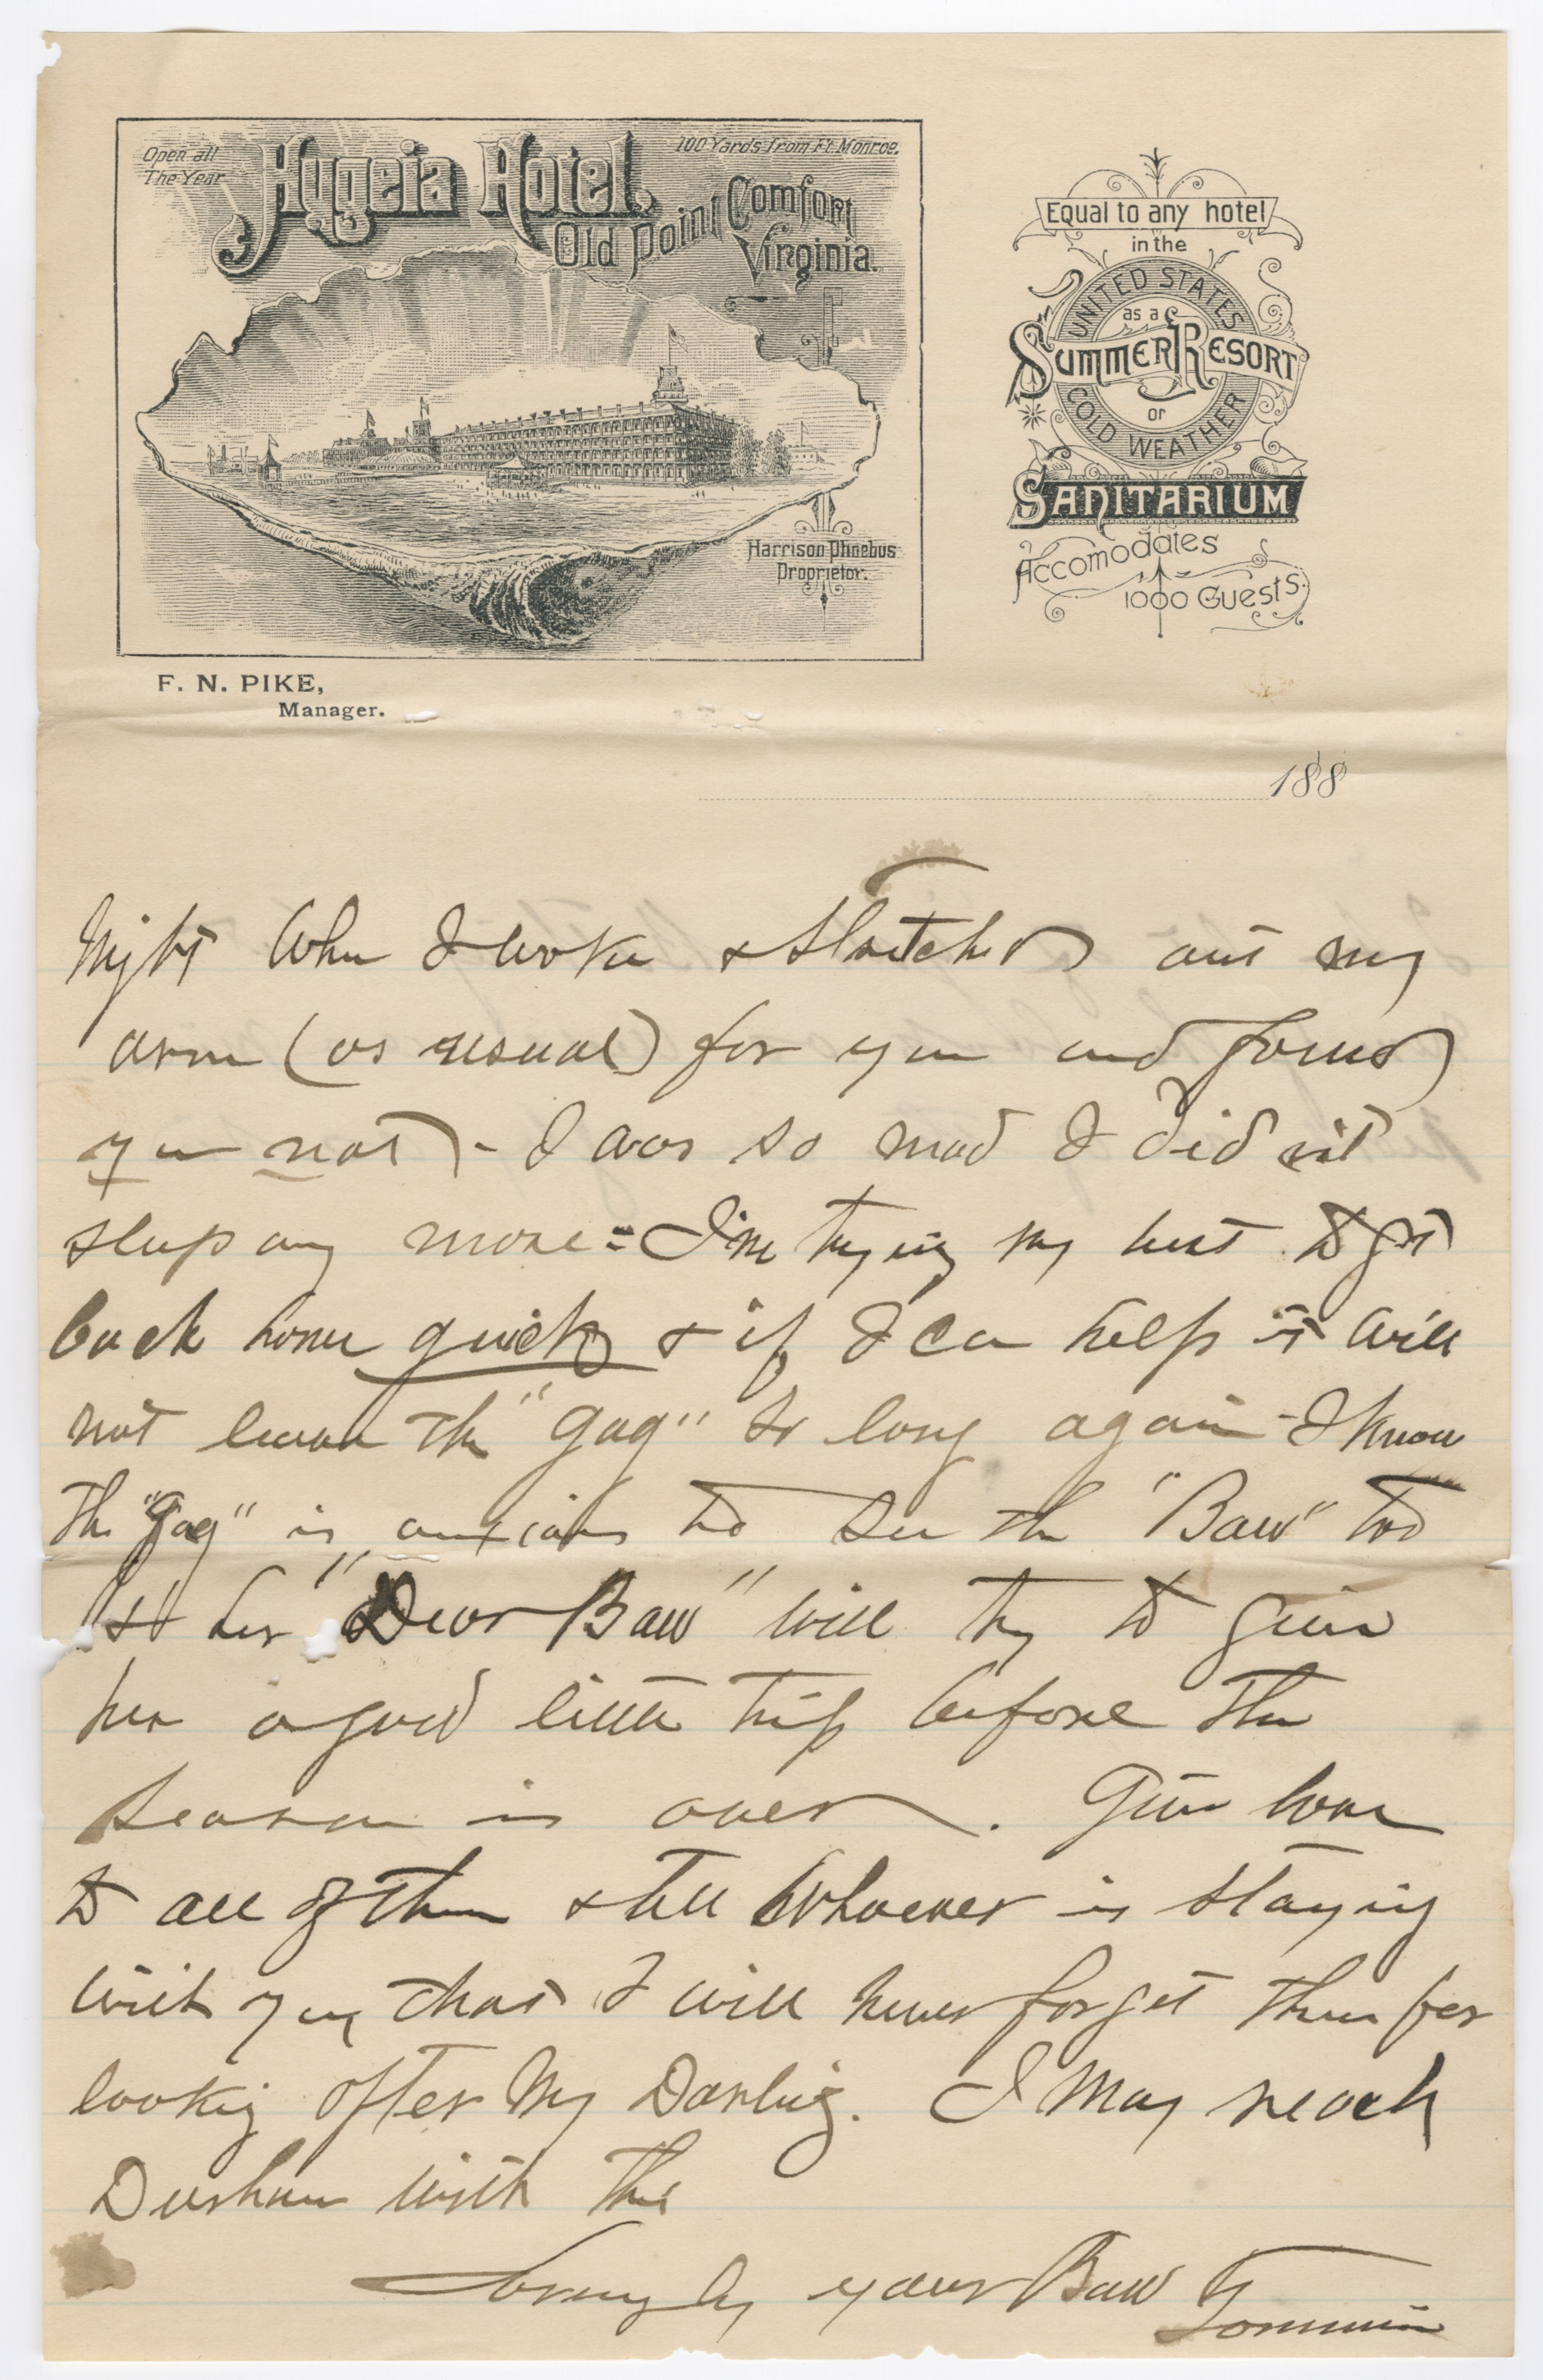 Open all
The Year
Hygeia Hotel,
100 Yards from Ft. Monroe.
Old Point Comfort
Virginia.
Harrison Phoebus
Proprietor.
F. N. PIKE,
Manager.
Equal to any hotel
in the
UNITED STATES
as a
SUMMER RESORT
or
COLD WEATHER
SANITARIUM
Accomodates
1000 Guests.
188
Night when I woke & stretched out my
arm (as usual) for you and found
you not) - I was so mad I did nt
sleep any more = I'm trying my best to get
back home quick & if I can help it will
not leave the "Gag" so long again - I know
the "Gag" is anxious to see the "Baw" too
& her "Dear Baw" will try to give
her a good little trip before the
season is over. Give love
to all of them & tell whoever is staying
with you, that I will never forget them for
looking after My Darling. I may reach
Durham with this
Lovingly your Baw
Tommie